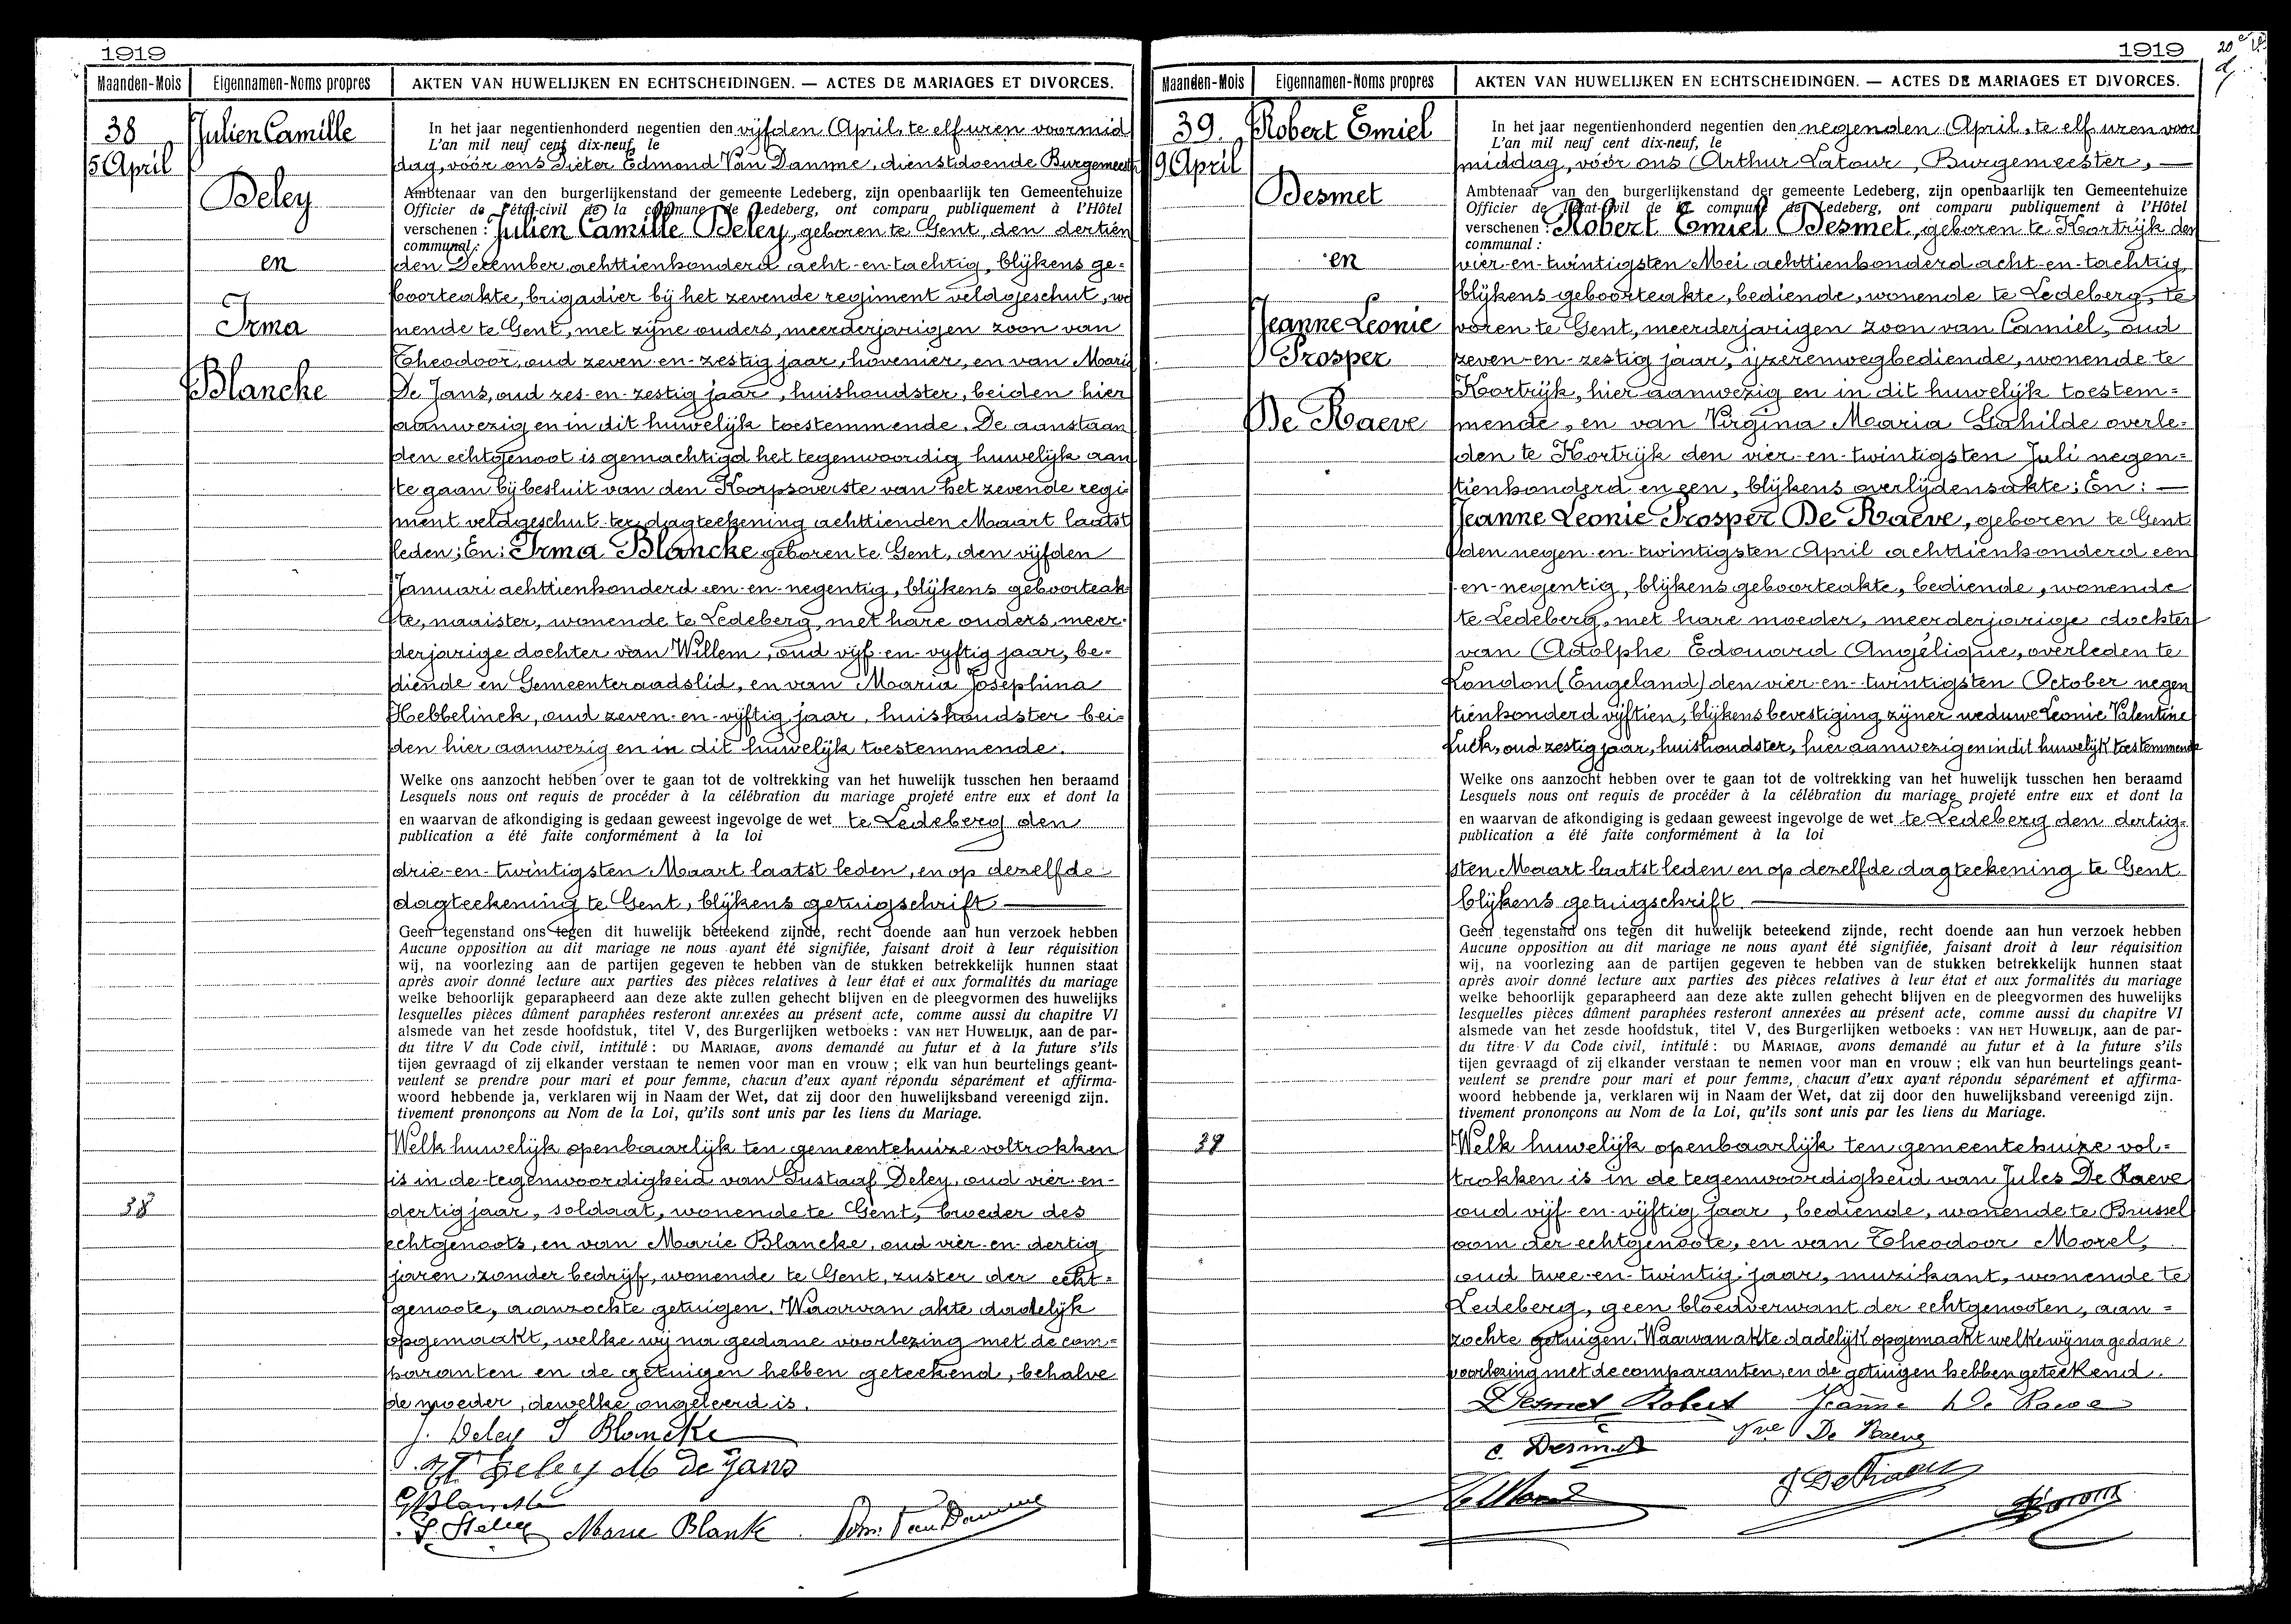 1919
Maanden-Mois Eigennamen-Noms propres AKTEN VAN HUWELIJKEN EN ECHTSCHEIDINGEN. — ACTES DE MARIAGES ET DIVORCES.
38
5 April
Julien Camille
Deley
en
Irma
Blancke
In het jaar negentienhonderd negentien den vijfden April, te elf uren voormid
L'an mil neuf cent dix-neuf, le
dag, vóór ons Pieter Edmond Van Damme, dienstdoende Burgemeester
Ambtenaar van den burgerlijkenstand der gemeente Ledeberg, zijn openbaarlijk ten Gemeentehuize
Officier de l'état-civil de la commune de Ledeberg, ont comparu publiquement à l'Hôtel
verschenen : Julien Camille Deley, geboren te Gent, den dertien
communal :
den December achttienhonderd acht-en-tachtig, blijkens ge=
boorteakte, brigadier bij het zevende regiment veldgeschut, wo
nende te Gent, met zijne ouders, meerderjarigen zoon van
Theodoor, oud zeven-en-zestig jaar, hovenier, en van Marie
De Jans, oud zes-en-zestig jaar, huishoudster, beiden hier
aanwezig en in dit huwelijk toestemmende. De aanstaan
den echtgenoot is gemachtigd het tegenwoordig huwelijk aan
te gaan bij besluit van den Korpsoverste van het zevende regi
ment veldgeschut ter dagteekening achttienden Maart laatst
leden; En: Irma Blancke geboren te Gent, den vijfden
Januari achttienhonderd een-en-negentig, blijkens geboorteak
te, naaister, wonende te Ledeberg, met hare ouders, meer-
derjarige dochter van Willem, oud vijf-en-vijftig jaar, be=
diende en Gemeenteraadslid, en van Maria Josephina
Hebbelinck, oud zeven-en-vijftig jaar, huishoudster bei=
den hier aanwezig en in dit huwelijk toestemmende.
Welke ons aanzocht hebben over te gaan tot de voltrekking van het huwelijk tusschen hen beraamd
Lesquels nous ont requis de procéder à la célébration du mariage projeté entre eux et dont la
en waarvan de afkondiging is gedaan geweest ingevolge de wet te Ledeberg den
publication a été faite conformément à la loi
drie-en-twintigsten Maart laatst leden, en op dezelfde
dagteekening te Gent, blijkens getuigschrift —
Geen tegenstand ons tegen dit huwelijk beteekend zijnde, recht doende aan hun verzoek hebben
Aucune opposition au dit mariage ne nous ayant été signifiée, faisant droit à leur réquisition
wij, na voorlezing aan de partijen gegeven te hebben van de stukken betrekkelijk hunnen staat
après avoir donné lecture aux parties des pièces relatives à leur état et aux formalités du mariage
welke behoorlijk geparapheerd aan deze akte zullen gehecht blijven en de pleegvormen des huwelijks
lesquelles pièces dûment paraphées resteront annexées au présent acte, comme aussi du chapitre VI
alsmede van het zesde hoofdstuk, titel V, des Burgerlijken wetboeks : VAN HET HUWELIJK, aan de par-
du titre V du Code civil, intitulé : DU MARIAGE, avons demandé au futur et à la future s'ils
tijen gevraagd of zij elkander verstaan te nemen voor man en vrouw ; elk van hun beurtelings geant-
veulent se prendre pour mari et pour femme, chacun d'eux ayant répondu séparément et affirma-
woord hebbende ja, verklaren wij in Naam der Wet, dat zij door den huwelijksband vereenigd zijn.
tivement prononçons au Nom de la Loi, qu'ils sont unis par les liens du Mariage.
Welk huwelijk openbaarlijk ten gemeentehuize voltrokken
is in de tegenwoordigheid van Gustaaf Deley, oud vier-en-
38
dertig jaar, soldaat, wonende te Gent, broeder des
echtgenoots, en van Marie Blancke, oud vier-en-dertig
jaren, zonder bedrijf, wonende te Gent, zuster der echt=
genoote, aanzochte getuigen. Waarvan akte dadelijk
opgemaakt, welke wij na gedane voorlezing met de com=
paranten en de getuigen hebben geteekend, behalve
de moeder, dewelke ongeleerd is.
J. Deley I Blancke
Deley M De Jans
G Blancke
Marie Blank Edm. Van Damme
1919
Maanden-Mois Eigennamen-Noms propres AKTEN VAN HUWELIJKEN EN ECHTSCHEIDINGEN. — ACTES DE MARIAGES ET DIVORCES.
39.
9 April
Robert Emiel
Desmet
en
Jeanne Leonie
Prosper
De Raeve
In het jaar negentienhonderd negentien den negenden April, te elf uren voor
L'an mil neuf cent dix-neuf, le
middag, vóór ons Arthur Latour, Burgemeester, —
Ambtenaar van den burgerlijkenstand der gemeente Ledeberg, zijn openbaarlijk ten Gemeentehuize
Officier de l'état-civil de la commune de Ledeberg, ont comparu publiquement à l'Hôtel
verschenen : Robert Emiel Desmet, geboren te Kortrijk den
communal :
vier-en-twintigsten Mei achttienhonderd acht-en-tachtig
blijkens geboorteakte, bediende, wonende te Ledeberg, te
voren te Gent, meerderjarigen zoon van Camiel, oud
zeven-en-zestig jaar, ijzerenwegbediende, wonende te
Kortrijk, hier aanwezig en in dit huwelijk toestem=
mende, en van Virgina Maria Gahilde overle=
den te Kortrijk den vier-en-twintigsten Juli negen=
tienhonderd en een, blijkens overlijdensakte; En: —
Jeanne Leonie Prosper De Raeve, geboren te Gent
den negen-en-twintigsten April achttienhonderd een
-en-negentig, blijkens geboorteakte, bediende, wonende
te Ledeberg, met hare moeder, meerderjarige dochter
van Adolphe Edouard Angélique, overleden te
London (Engeland) den vier-en-twintigsten October negen
tienhonderd vijftien, blijkens bevestiging zijner weduwe Leonie Valentine
Luck, oud zestig jaar, huishoudster, hier aanwezig en in dit huwelijk toestemmende
Welke ons aanzocht hebben over te gaan tot de voltrekking van het huwelijk tusschen hen beraamd
Lesquels nous ont requis de procéder à la célébration du mariage projeté entre eux et dont la
en waarvan de afkondiging is gedaan geweest ingevolge de wet te Ledeberg den dertig-
publication a été faite conformément à la loi
sten Maart laatst leden en op dezelfde dagteekening te Gent
blijkens getuigschrift —
Geen tegenstand ons tegen dit huwelijk beteekend zijnde, recht doende aan hun verzoek hebben
Aucune opposition au dit mariage ne nous ayant été signifiée, faisant droit à leur réquisition
wij, na voorlezing aan de partijen gegeven te hebben van de stukken betrekkelijk hunnen staat
après avoir donné lecture aux parties des pièces relatives à leur état et aux formalités du mariage
welke behoorlijk geparapheerd aan deze akte zullen gehecht blijven en de pleegvormen des huwelijks
lesquelles pièces dûment paraphées resteront annexées au présent acte, comme aussi du chapitre VI
alsmede van het zesde hoofdstuk, titel V, des Burgerlijken wetboeks : VAN HET HUWELIJK, aan de par-
du titre V du Code civil, intitulé : DU MARIAGE, avons demandé au futur et à la future s'ils
tijen gevraagd of zij elkander verstaan te nemen voor man en vrouw ; elk van hun beurtelings geant-
veulent se prendre pour mari et pour femme, chacun d'eux ayant répondu séparément et affirma-
woord hebbende ja, verklaren wij in Naam der Wet, dat zij door den huwelijksband vereenigd zijn.
tivement prononçons au Nom de la Loi, qu'ils sont unis par les liens du Mariage.
39
Welk huwelijk openbaarlijk ten gemeentehuize vol=
trokken is in de tegenwoordigheid van Jules De Raeve
oud vijf-en-vijftig jaar, bediende, wonende te Brussel
oom der echtgenoote, en van Theodoor Morel,
oud twee-en-twintig jaar, muzikant, wonende te
Ledeberg, geen bloedverwant der echtgenooten, aan=
zochte getuigen. Waarvan akte dadelijk opgemaakt welke wij na gedane
voorlezing met de comparanten, en de getuigen hebben geteekend.
Desmet Robert Jeanne De Raeve
C. Desmet Vve De Raeve
J De Raeve